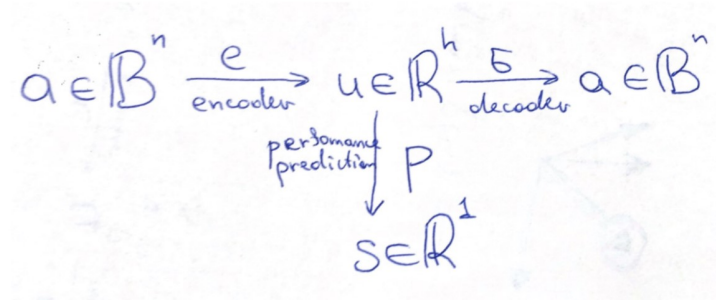 a ∈ 𝔹ⁿ e encoder u ∈ ℝʰ Б decoder a ∈ 𝔹ⁿ
persomance
prediction P
s ∈ ℝ¹